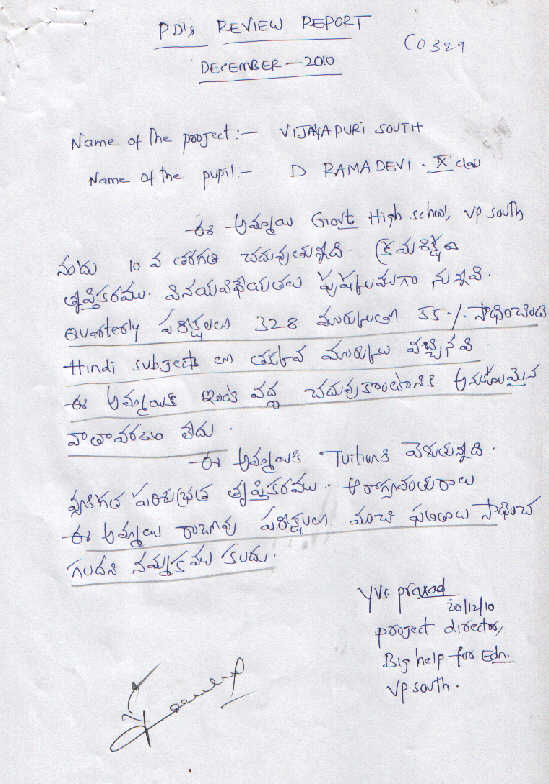 PD's REVIEW REPORT
C0329
DECEMBER - 2010
Name of the project:- VIJAYAPURI SOUTH
Name of the pupil:- D RAMADEVI. X class
ఈ అమ్మాయి Govt High school, VP south
నందు 10 వ తరగతి చదువుతున్నది. క్రమశిక్షణ
తృప్తికరము. వినయవిధేయతలు పుష్కలముగా నున్నవి.
Quarterly పరీక్షలలో 328 మార్కులతో 55./. సాధించింది
Hindi subject లో తక్కువ మార్కులు వచ్చినవి
ఈ అమ్మాయికి ఇంటి వద్ద చదువుకొంటానికి అనుకూలమైన
వాతావరణం లేదు.
ఈ అమ్మాయి Tuitionకి వెళుతున్నది.
వ్యక్తిగత పరిశుభ్రత తృప్తికరము. ఆరోగ్యవంతురాలు
ఈ అమ్మాయి రాబోవు పరీక్షలలో మంచి ఫలితాలు సాధించ
గలదని నమ్మకము కలదు.
YVS prasad
20/12/10
project director,
Big help for Edn.
VP south.